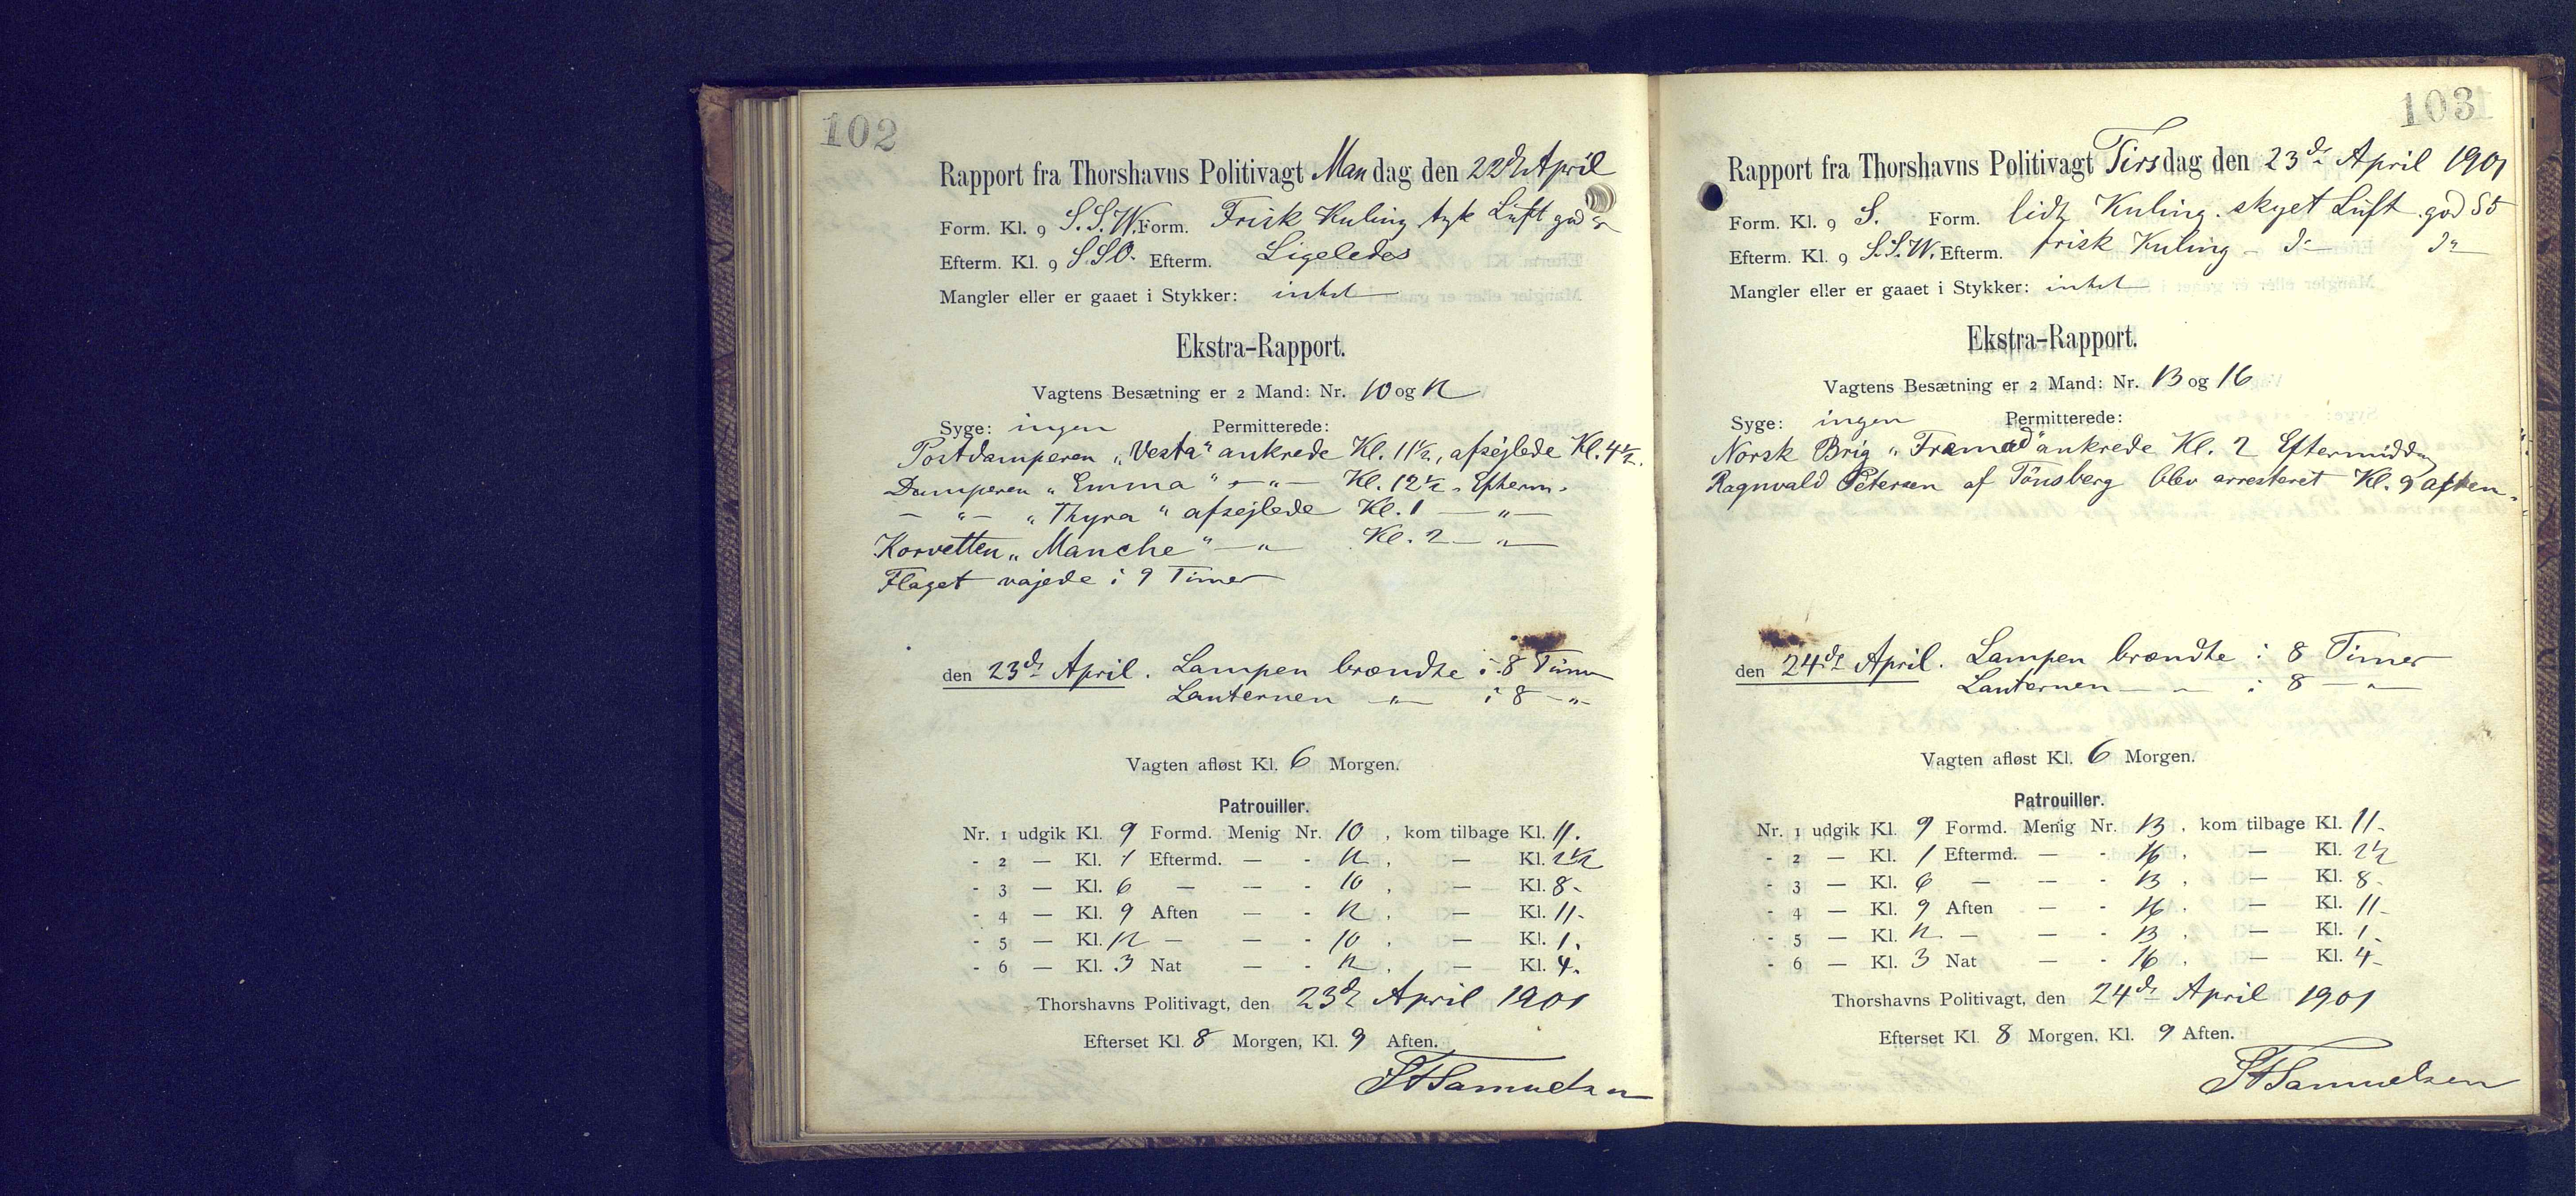 102
Rapport fra Thorshavns Politivagt Mandag den 22de April
Form. Kl. 9 S.S.W. Form. Frisk Kuling tyk Luft god
Efterm. Kl. 9 SSO. Efterm. Ligeledes
Mangler eller er gaaet i Stykker: intet
Ekstra-Rapport.
Vagtens Besætning er 2 Mand: Nr. 10 og 12
Syge: ingen Permitterede:
Postdamperen „Vesta" ankrede Kl. 11½, afsejlede Kl. 4½.
Damperen „Emma" — " — Kl. 12½ - Efterm.
— " — „Thyra" afsejlede Kl. 1 — " —
Korvetten „Manche" — " — Kl. 2 — " —
Flaget vajede i 9 Timer
den 23de April. Lampen brændte i 8 Timer
Lanternen — " — i 8 — " —
Vagten afløst Kl. 6 Morgen.
Patrouiller.
Nr. 1 udgik Kl. 9 Formd. Menig Nr. 10, kom tilbage Kl. 11.
- 2 — Kl. 1 Eftermd. — - 12, — Kl. 2½
- 3 — Kl. 6 — — - 10, — Kl. 8-
- 4 — Kl. 9 Aften — - 12, — Kl. 11-
- 5 — Kl. 12 — — - 10, — Kl. 1.
- 6 — Kl. 3 Nat — - 12, — Kl. 4.
Thorshavns Politivagt, den 23de April 1901
Efterset Kl. 8 Morgen, Kl. 9 Aften.
Samuelsen
103
Rapport fra Thorshavns Politivagt Tirsdag den 23de April 1901
Form. Kl. 9 S. Form. lidt Kuling. skyet Luft. god S5
Efterm. Kl. 9 S.S.W. Efterm. frisk Kuling - do — do
Mangler eller er gaaet i Stykker: intet
Ekstra-Rapport.
Vagtens Besætning er 2 Mand: Nr. 13 og 16
Syge: ingen Permitterede:
Norsk Brig „Framad" ankrede Kl. 2 Eftermiddag
Ragnvald Petersen af Tönsberg blev arresteret Kl. 9 aften.
den 24de April. Lampen brændte i 8 Timer
Lanternen — " i 8 — " —
Vagten afløst Kl. 6 Morgen.
Patrouiller.
Nr. 1 udgik Kl. 9 Formd. Menig Nr. 13, kom tilbage Kl. 11-
- 2 — Kl. 1 Eftermd. — - 16, — Kl. 2½
- 3 — Kl. 6 — — - 13, — Kl. 8-
- 4 — Kl. 9 Aften — - 16, — Kl. 11-
- 5 — Kl. 12 — — - 13, — Kl. 1-
- 6 — Kl. 3 Nat — - 16, — Kl. 4-
Thorshavns Politivagt, den 24de April 1901
Efterset Kl. 8 Morgen, Kl. 9 Aften.
Samuelsen